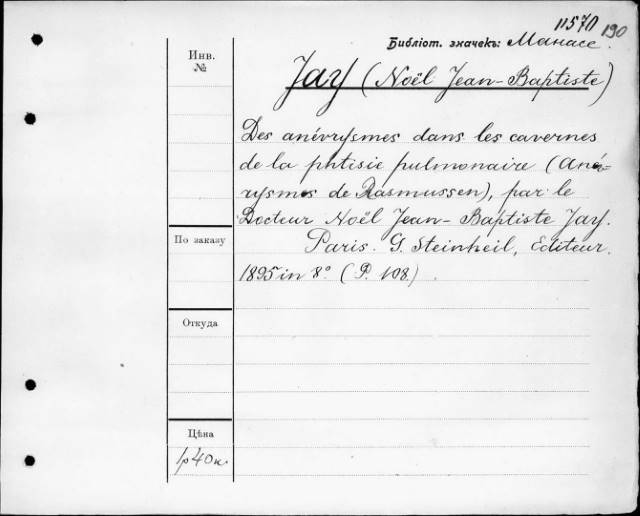 11570 190
Библіот. значекъ: Манасе.
Инв.
№
Jay (Noël Jean-Baptiste)
Des anévrysmes dans les cavernes
de la phtisie pulmonaire (Ané-
rysmes de Rasmussen), par le
Docteur Noël Jean-Baptiste Jay.
По заказу
Paris. G. Steinheil, Editeur.
1895 in 8° (P. 108)
Откуда
Цѣна
1р40к